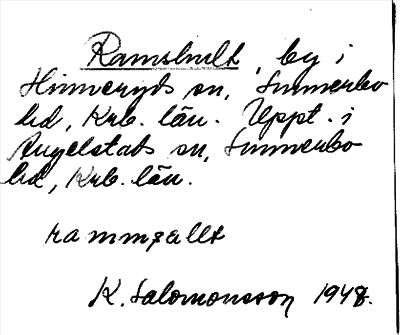 Ramshult, by i
Hinneryds sn, Sunnerbo
hd, Krb. län. Uppt. i
Angelstads sn, Sunnerbo
hd, Krb. län.
K. Salomonsson 1948.